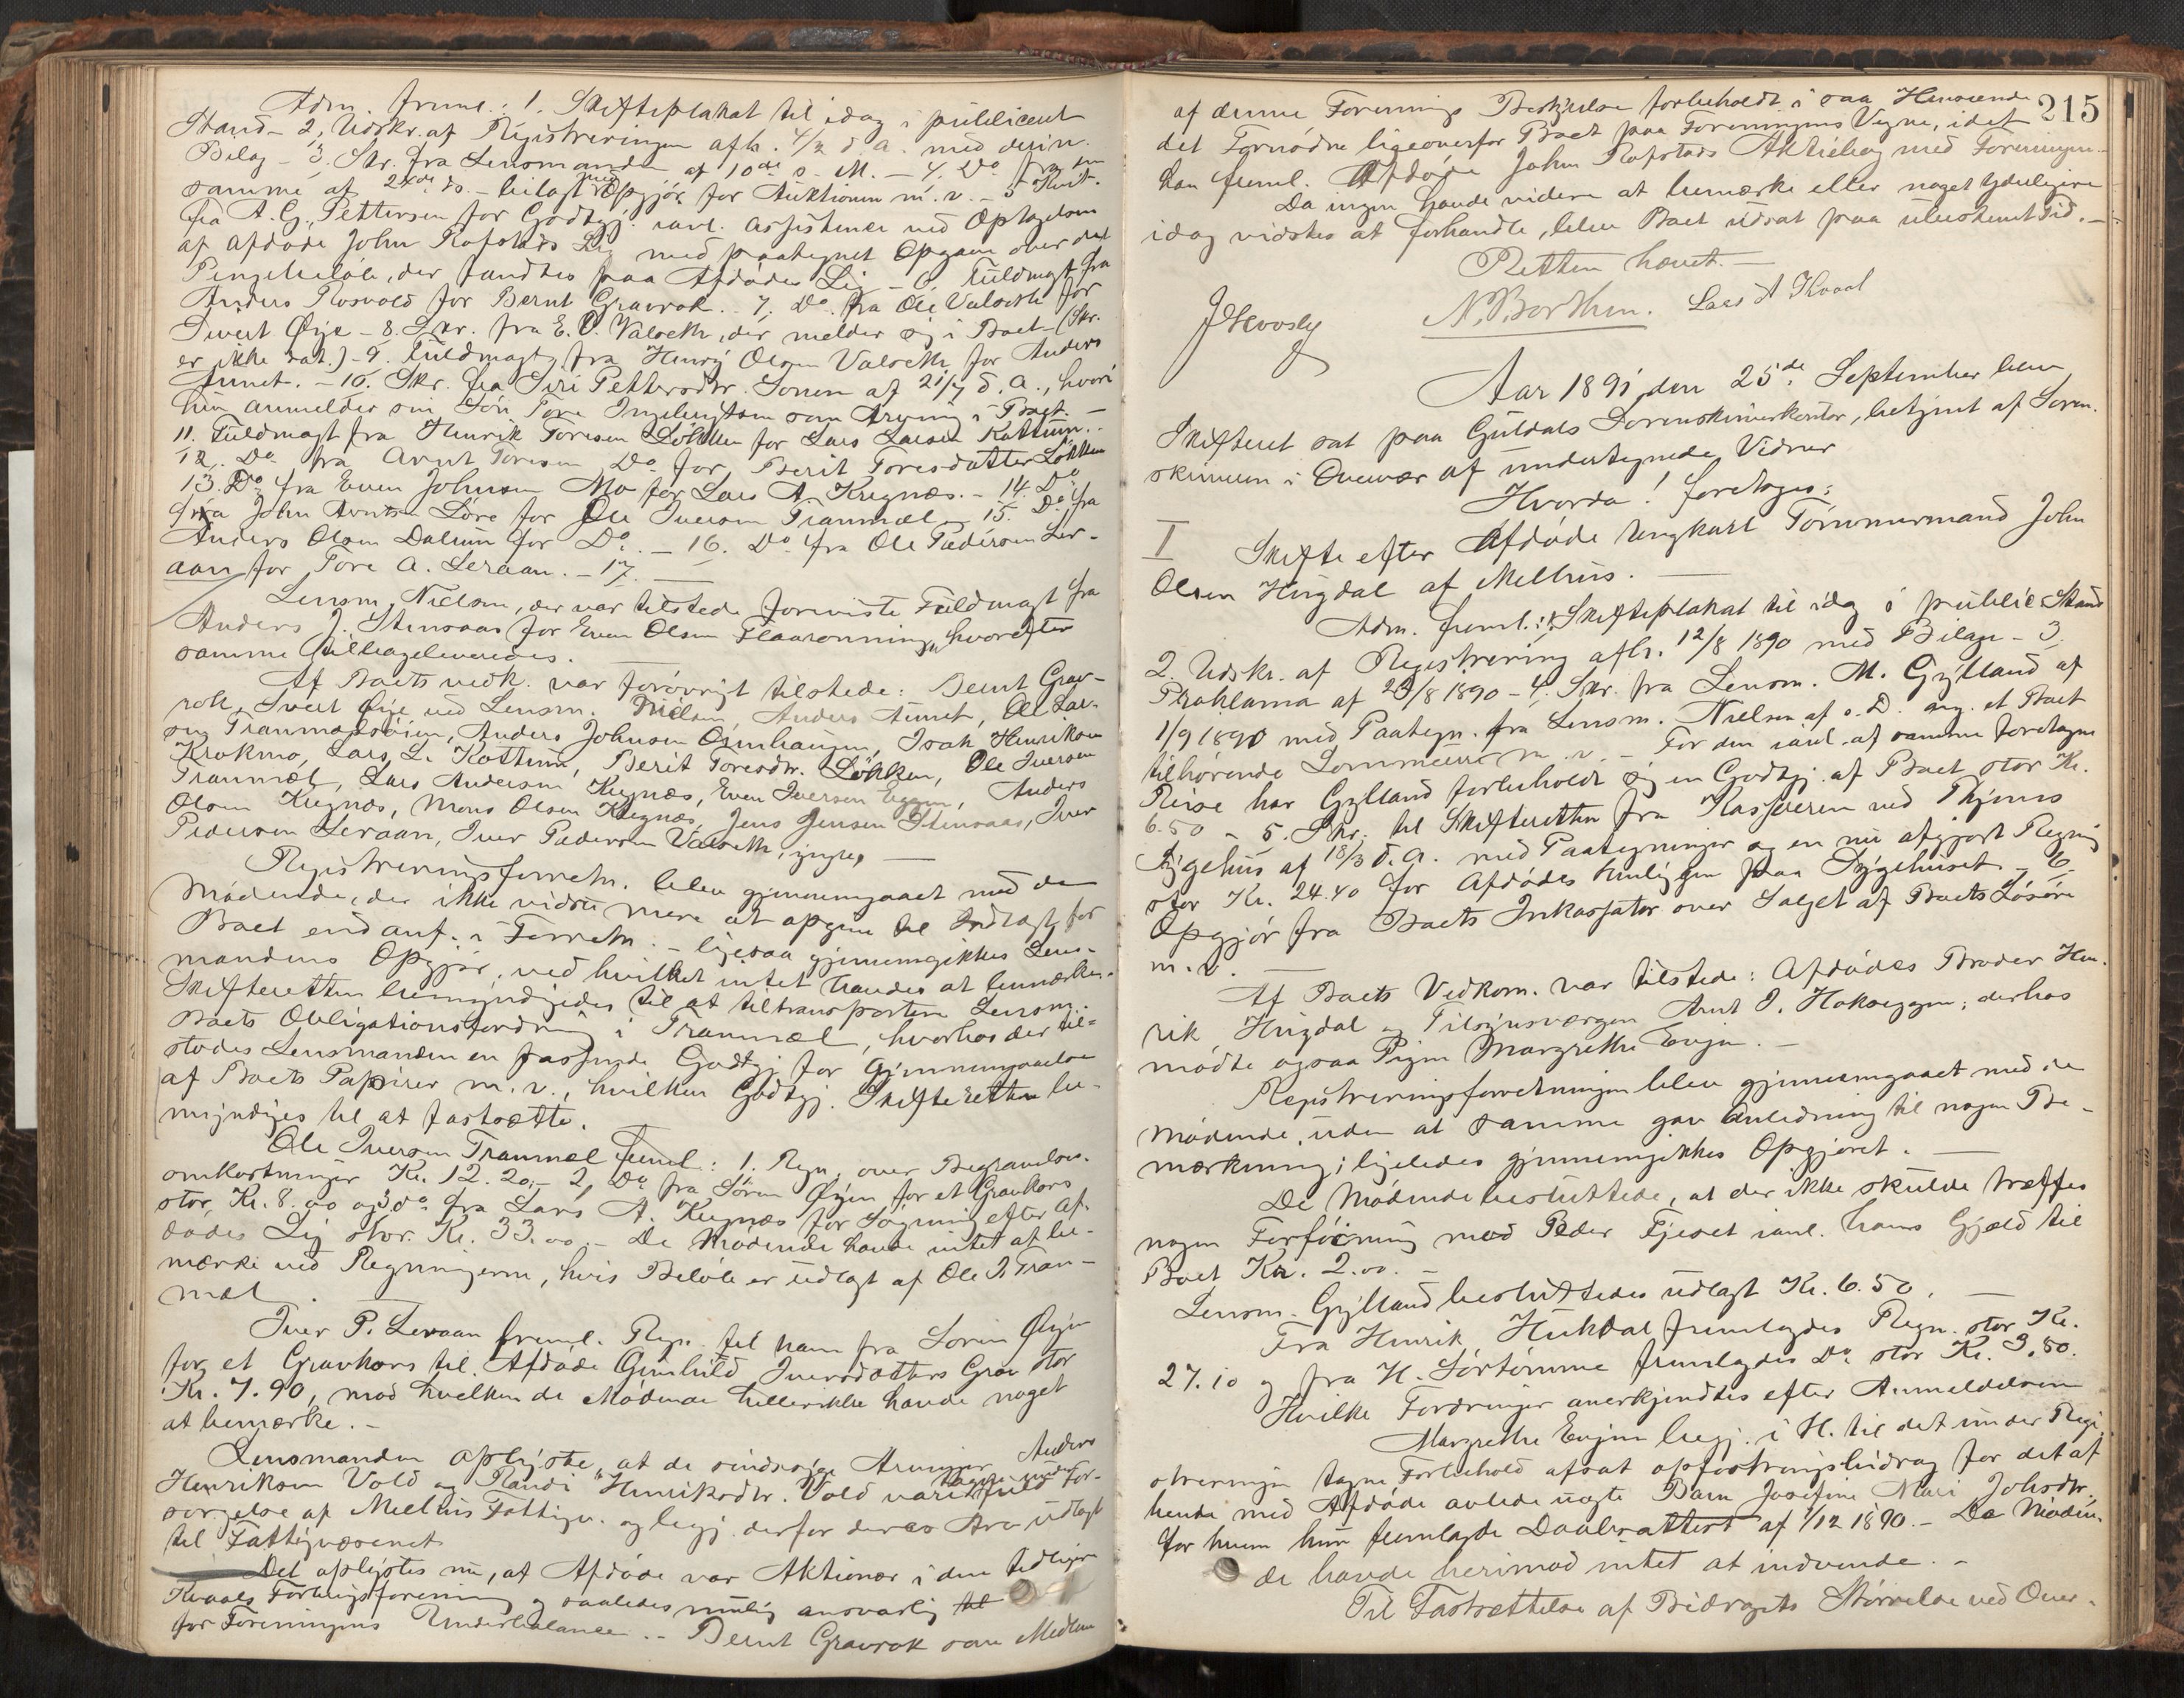 Adm. freml.: 1. Skifteplakat til idag i publiceret
Stand - 2, Udskr. af Registreringen afh. 4/2 d. A. med desin.
Bilag - 3. Skr. fra Lensmanden af 10de s. M. - 4. Do fra
samme af 24de ds. - bilagt med Opgjör for Auktionen m. v. - 5 Kvit.
fra A. G. Pettersen for Godtgj. iavl. Assistance ved Optagelsen
af Afdöde John Rofstads Lig med paategnet Opgave over det
Pengebelöb, der fandtes paa Afdödes Lig - 6. Fuldmagt fra
Anders Rosvold for Bernt Gravrok. - 7. Do. fra Ole Valseth for
Sivert Öye - 8. Skr. fra E. O. Valseth, der melder sig i Boet - (Skr.
er ikke dat.) - 9. Fuldmagt fra Henry Olsen Valseth for Anders
Aunet. - 10. Skr. fra Siri Pettersdtr. Sonen af 21/7 d. A., hvori
hun anmelder sin Sön Tore Ingebrigtsen som Arving i Boet. -
11. Fuldmagt fra Henrik Toresen Lökken for Lars Larsen Kattum. -
12. Do fra Arnt Toresen Do for Berit Toresdatter Lökken
13. Do fra Even Johnsen Mo for Lars A. Kregnæs. - 14. Do
fra John Arntsen Löre for Ole Iversen Tranmæl - 15. Do fra
Anders Olsen Dalum for Do. - 16. Do fra Ole Pedersen Ler-
aan for Tore A. Leraan. - 17.
Lensm. Nielsen, der var tilstede foreviste Fuldmagt fra
Anders J. Stensaas for Even Olsen Flaarönning, hvorefter
samme tilbageleveredes.
Af Boets vedk. var forövrigt tilstede: Bernt Grav-
rok, Sivert Öye ved Lensm. Nielsen, Anders Aunet, Ole Lar-
sen Tranmælsöien, Anders Johnsen Gimhaugen, Isak Henriksen
Krokmo, Lars L. Kattum, Berit Toresdtr. Lökken, Ole Iversen
Tranmæl, Lars Andersen Kregnæs, Even Iversen Eggen, Anders
Olsen Kregnæs, Mons Olsen Kregnæs, Jens Jensen Stensaas, Iver
Pedersen Leraan, Iver Pedersen Valseth, yngre, -
Registreringsforretn. blev gjennemgaaet med de
Mödende, der ikke vidste mere at opgive til Indtægt for
Boet end anf. i Forretn. - ligesaa gjennemgikkes Lens-
mandens Opgjör, ved hvilket intet havdes at bemærke.
Skifteretten bemyndigedes til at tiltransportere Lensm.
Boets Obligationsfordring i Tranmæl, hvorhos der til-
stodes Lensmanden en passende Godtgj. for Gjennemgaaelse
af Boets Papirer m. v., hvilken Godtgj. Skifteretten be-
myndiges til at fastsætte.
Ole Iversen Tranmæl freml.: 1. Regn. over Begravelses-
omkostninger Kr. 12.20 - 2, Do fra Sören Öyen for et Gravkors
stor, Kr. 8.00 og 3 do fra Lars A. Kregnæs for Sögning efter Af-
dödes Lig stor Kr. 33.00. - De Mödende havde intet at be-
mærke ved Regningerne, hvis Belöb er udlagt af Ole I. Tran-
mæl.
Iver P. Leraan freml. Regn. til ham fra Sören Öyen
for et Gravkors til Afdöde Gunhild Iversdatters Grav stor
Kr. 7.90, mod hvilken de Mödende hellerikke havde noget
at bemærke. -
Lensmanden oplyste, at de sindssyge Arvinger Anders
Henriksen Vold og Randi Henriksdtr. Vold vare under For-
sörgelse af Melhus Fattigv. og begj. derfor deres Arv udlagt
til Fattigvæsenet
Det oplystes nu, at Afdöde var Aktionær i den tidligere
Kvaals Forbrugsforening og saaledes mulig ansvarlig
for Foreningens Underbalance. - Bernt Gravrok som Medlem
215
af denne Forenings Bestyrelse forbeholdt i saa Henseende
det Fornödne ligeoverfor Boet paa Foreningens Vegne, idet
han freml. Afdöde John Rofstads Aktiebrev med Foreningen. -
Da ingen havde videre at bemærke eller noget yderligere
idag vidstes at forhandle, blev Boet udsat paa ubestemt Tid. -
Retten hævet. -
N. Borthen. Lars A Kvaal
Aar 1891, den 25de September blev
Skifteret sat paa Guldals Sorenskriverkontor, betjent af Soren-
skriveren i Overvær af undertegnede Vidner
Hvorda! foretoges:
I Skifte efter Afdöde Ungkarl Tömmermand John
Olsen Hugdal af Melhus.
Adm. freml.: 1. Skifteplakat til idag i public. Stand
2. Udskr. af Registrering afh. 12/8 1890 med Bilage - 3.
Proklama af 23/8 1890 - 4. Skr. fra Lensm. M. Gylland af
1/9 1890 med Paategn. fra Lensm. Nielsen af s. D. ang. et Boet
tilhörende Lommeur m. v. - For den iavl. af samme foretagne
Reise har Gylland forbeholdt sig en Godtgj. af Boet stor Kr.
6.50 - 5. Skr. til Skifteretten fra Kassereren ved Thjems
Sygehus af 18/3 d. A. med Paategninger og en nu afgjort Regning
stor Kr. 24.40 for Afdödes Henliggen paa Sygehuset. - 6.
Opgjör fra Boets Inkassator over Salget af Boets Lösöre
m. v. -
Af Boets Vedkom. var tilstede: Afdödes Broder Hen-
rik Hugdal og Tilsynsværgen Arnt I. Hokseggen; derhos
mödte ogsaa Pigen Margrethe Enjen. -
Registreringsforretningen blev gjennemgaaet med de
Mödende, uden at samme gav Anledning til nogen Be-
mærkning; ligeledes gjennemgikkes Opgjöret. -
De Mödende besluttede, at der ikke skulde træffes
nogen Forföining mod Peder Fjeset iavl. hans Gjæld til
Boet Kr. 2.00. -
Lensm. Gylland besluttedes udlagt Kr. 6.50. -
Fra Henrik Hukdal fremlagdes Regn. stor Kr.
27.10 og fra H. Sörtömme fremlagdes Do stor Kr. 3.50.
Hvilke Fordringer anerkjendtes efter Anmeldelserne
Margrethe Enjen begj. i H. til det under Regi-
streringen tagne Forbehold afsat opfostringsbidrag for det af
hende med Afdöde avlede uægte Barn Josefine Mari Johsdtr.
for hvem hun fremlagde Daabsattest af 1/12 1890. - De Möden-
de havde herimod intet at indvende. -
Til Fastsættelse af Bidragets Störrelse ved Over-